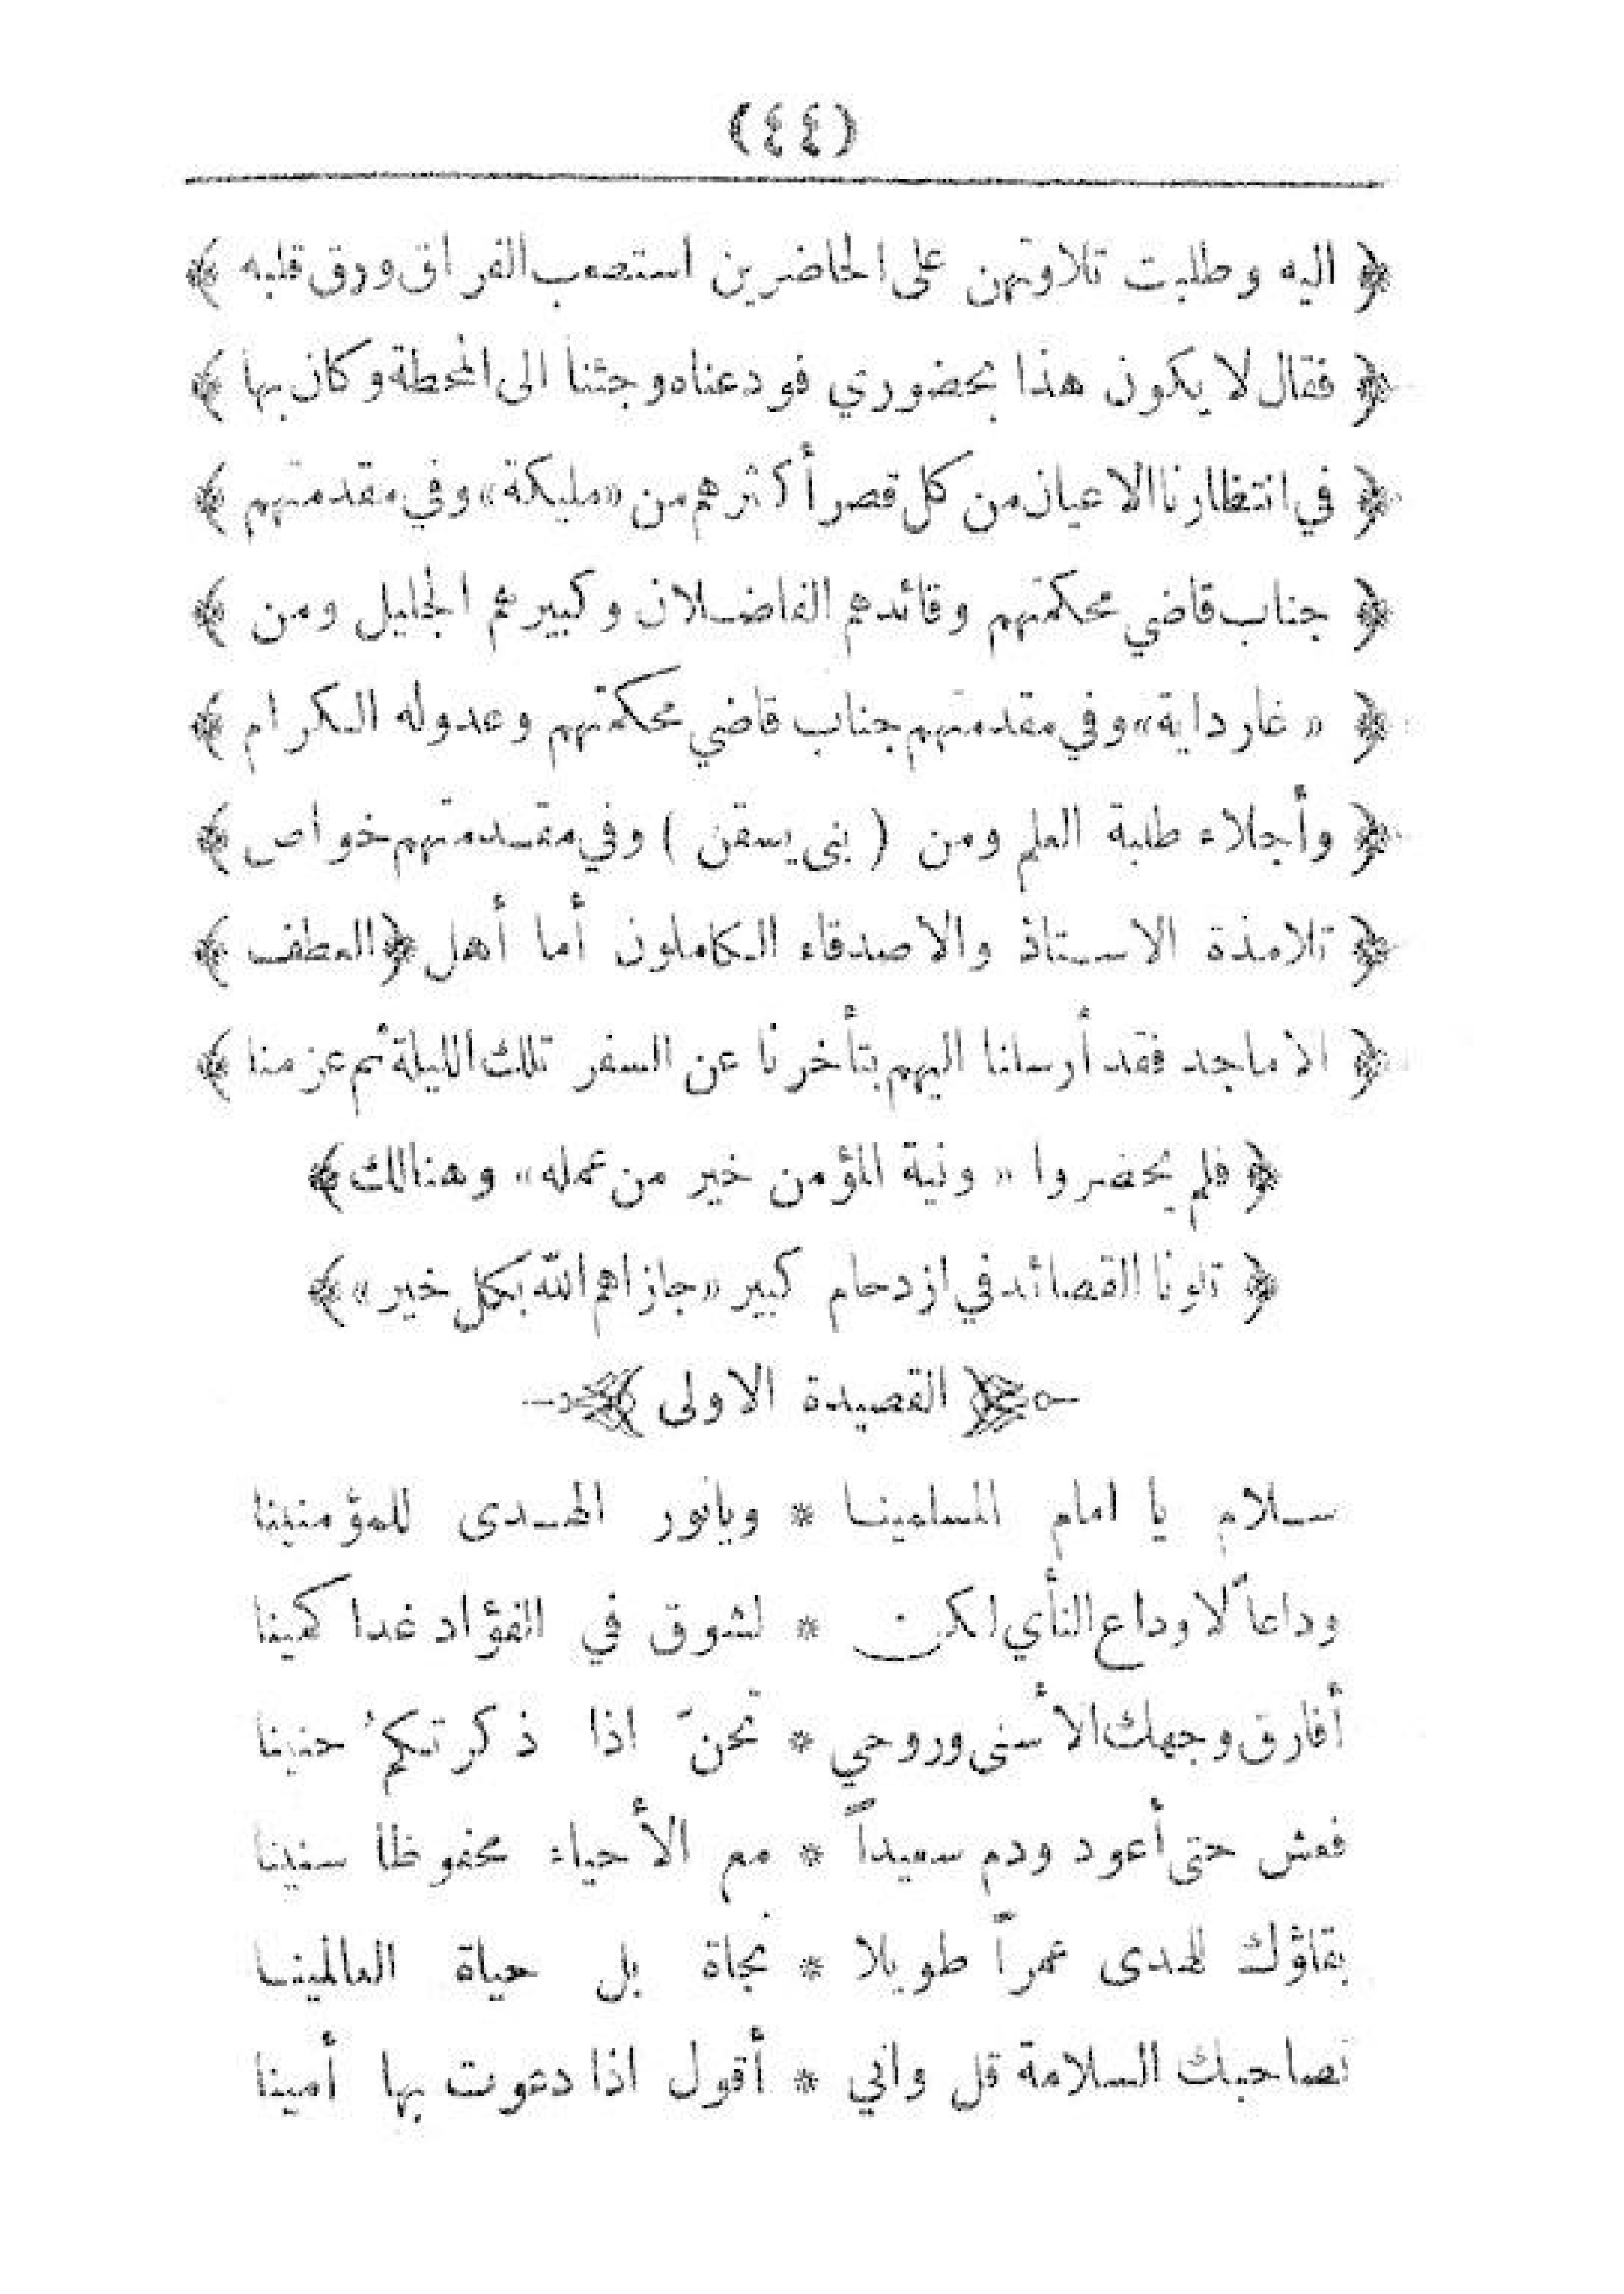 (٤٤)
﴿ اليه وطلبت تلاوتهن على الحاضرين استصعب الفراق ورق قلبه ﴾
﴿ فقال لا يكون هذا بحضوري فودعناه وجئنا الى المحطة وكان بها ﴾
﴿ في انتظارنا الاعيان من كل قصر أكثرهم من «مليكة» وفي مقدمتهم ﴾
﴿ جناب قاضي محكمتهم وقائدهم الفاضلان وكبيرهم الجليل ومن ﴾
﴿ «غارداية» وفي مقدمتهم جناب قاضي محكمتهم وعدوله الكرام ﴾
﴿ وأجلاء طلبة العلم ومن ( بنى يسقن ) وفي مقدمتهم خواص ﴾
﴿ تلامذة الاستاذ والاصدقاء الكاملون أما أهل ﴿العطف ﴾
﴿ الاماجد فقد أرسلنا اليهم بتأخرنا عن السفر تلك الليلة ثم عزمنا ﴾
﴿ فلم يحضروا «ونية المؤمن خير من عمله» وهنالك ﴾
﴿ تلونا القصائد في ازدحام كبير «جازاهم الله بكل خير» ﴾
﴿ القصيدة الاولى ﴾
سلام يا امام المسلمينا * ويانور الهدى للمؤمنينا
وداعاً لا وداع النأي لكن * لشوق في الفؤاد غدا كمينا
أفارق وجهك الأسنى وروحي * تحنّ اذا ذكرتكمُ حنينا
فعش حتى أعود ودم سعيداً * مع الأحياء محفوظا سنينا
بقاؤك للهدى عمراً طويلا * نجاة بل حياة العالمينا
تصاحبك السلامة قل واني * أقول اذا دعوت بها أمينا